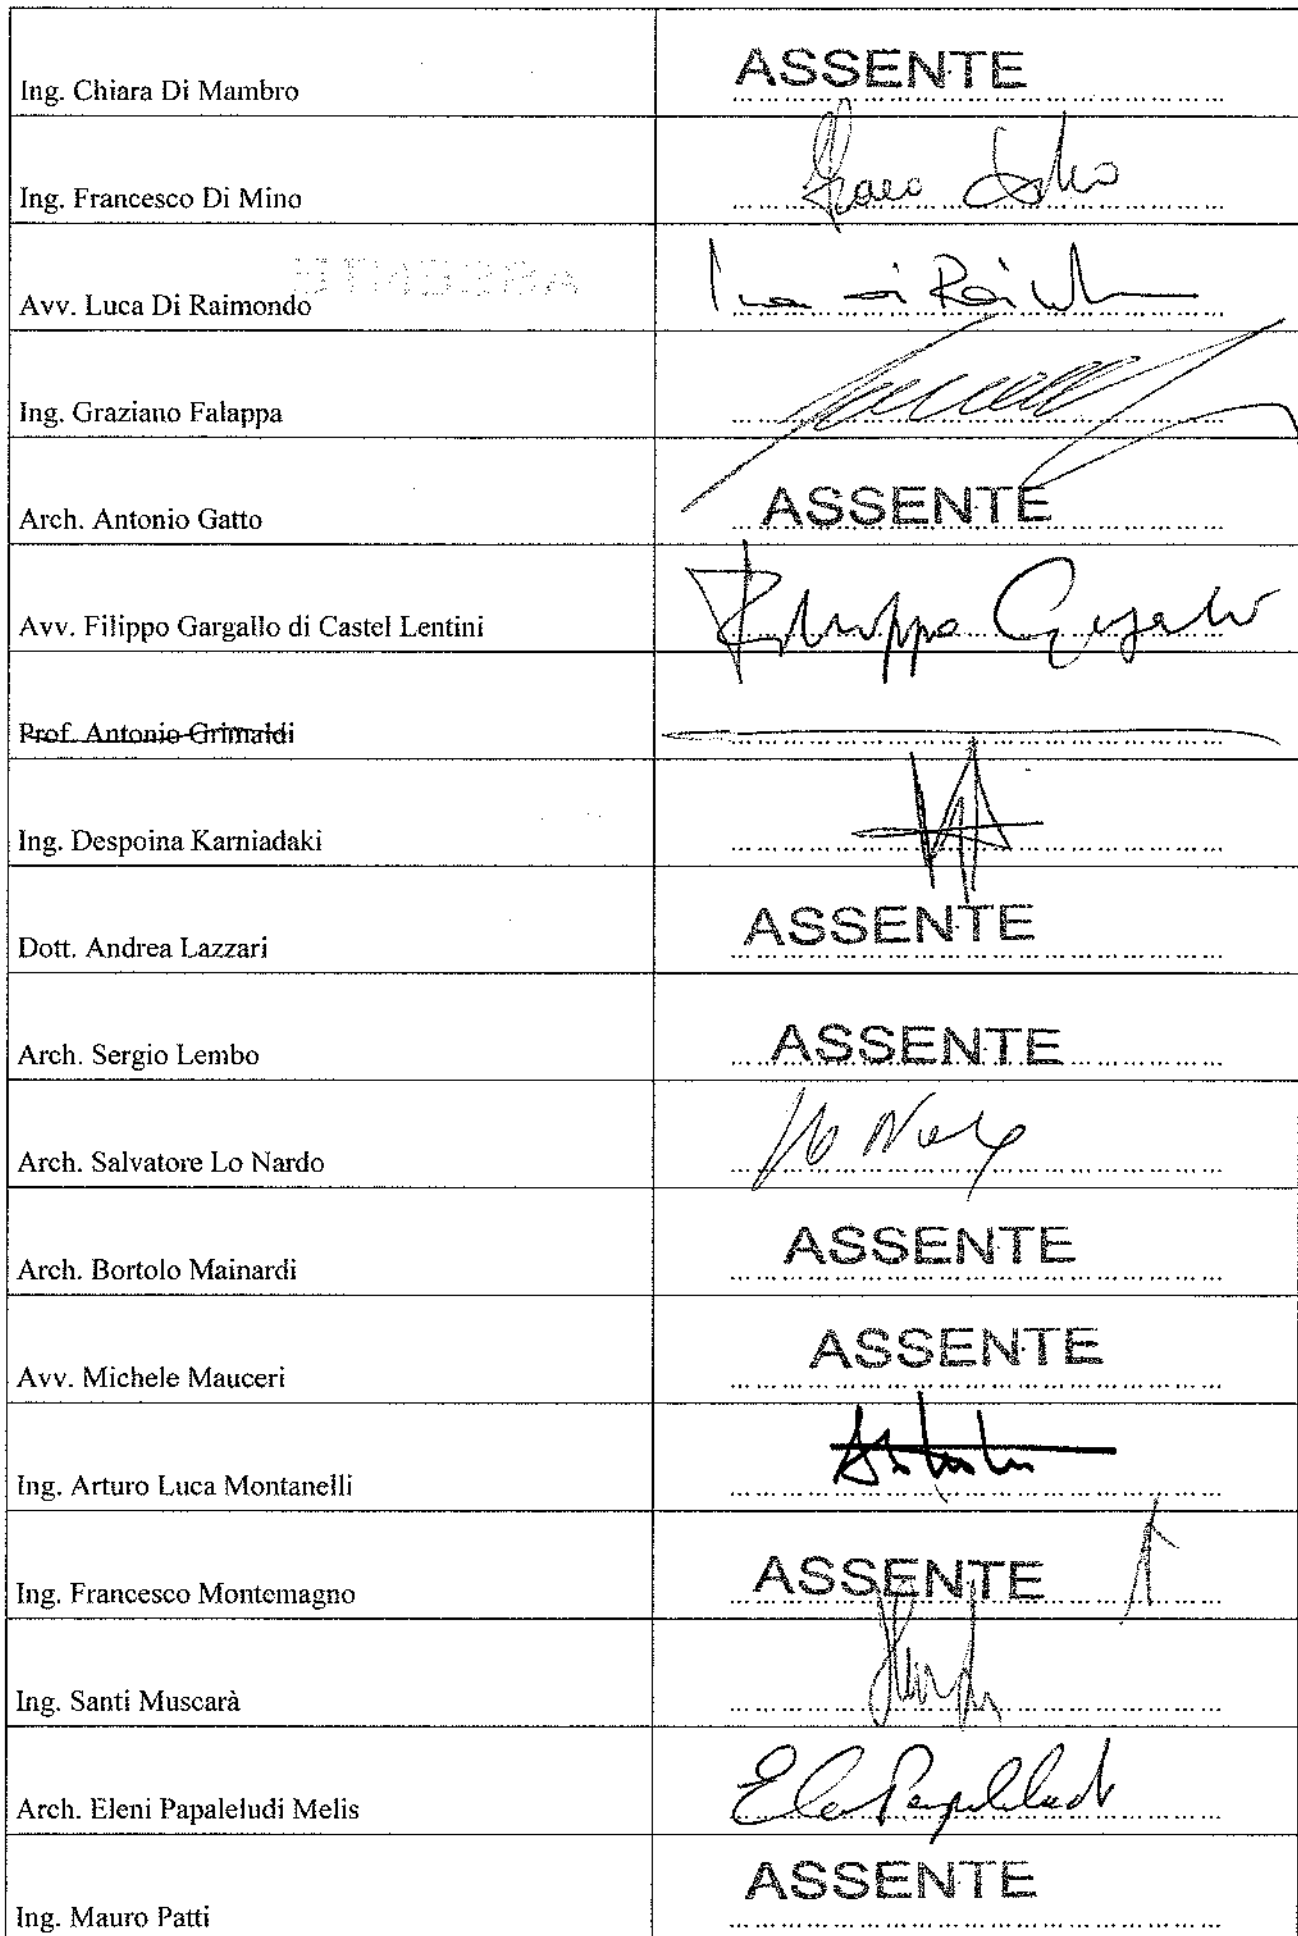 Ing. Chiara Di Mambro ASSENTE
Ing. Francesco Di Mino
Avv. Luca Di Raimondo
Ing. Graziano Falappa
Arch. Antonio Gatto ASSENTE
Avv. Filippo Gargallo di Castel Lentini Filippo Gargallo
Prof. Antonio Grimaldi
Ing. Despoina Karniadaki
Dott. Andrea Lazzari ASSENTE
Arch. Sergio Lembo ASSENTE
Arch. Salvatore Lo Nardo
Arch. Bortolo Mainardi ASSENTE
Avv. Michele Mauceri ASSENTE
Ing. Arturo Luca Montanelli
Ing. Francesco Montemagno ASSENTE
Ing. Santi Muscarà
Arch. Eleni Papaleludi Melis
Ing. Mauro Patti ASSENTE